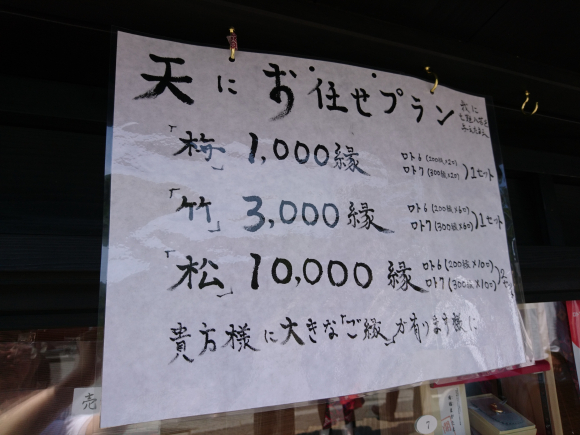 天にお任せプラン
我に
七難八苦を
与えたまえ
「梅」1,000縁
ロト6(200縁×2口)
ロト7(300縁×2口)
1セット
「竹」3,000縁
ロト6(200縁×6口)
ロト7(300縁×6口)
1セット
「松」10,000縁
ロト6(200縁×10口)
ロト7(300縁×10口)
2セット
貴方様に大きな「ご縁」が有ります様に
売
7